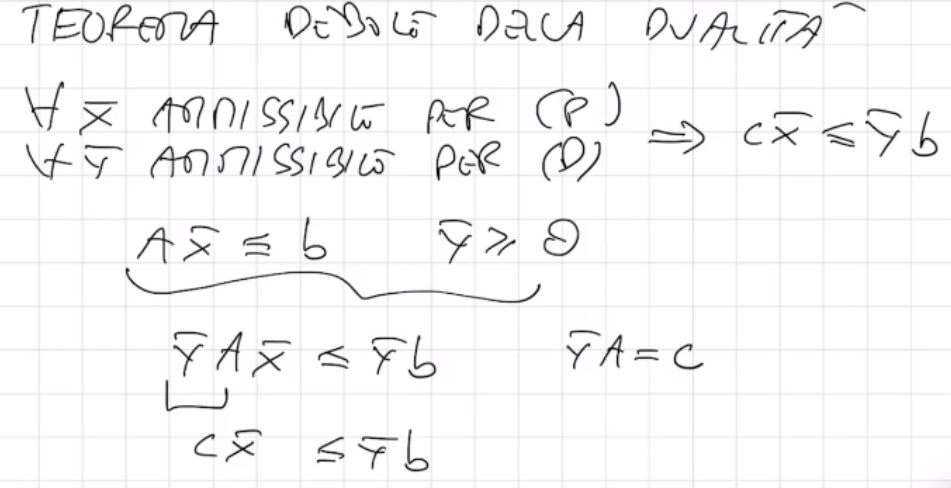 TEOREMA DEBOLE DELLA DUALITÀ
∀ x̄ AMMISSIBILE PER (P)
∀ ȳ AMMISSIBILE PER (D) ⟹ cx̄ ≤ ȳb
Ax̄ ≤ b ȳ ≥ 0
ȳAx̄ ≤ ȳb ȳA = c
cx̄ ≤ ȳb